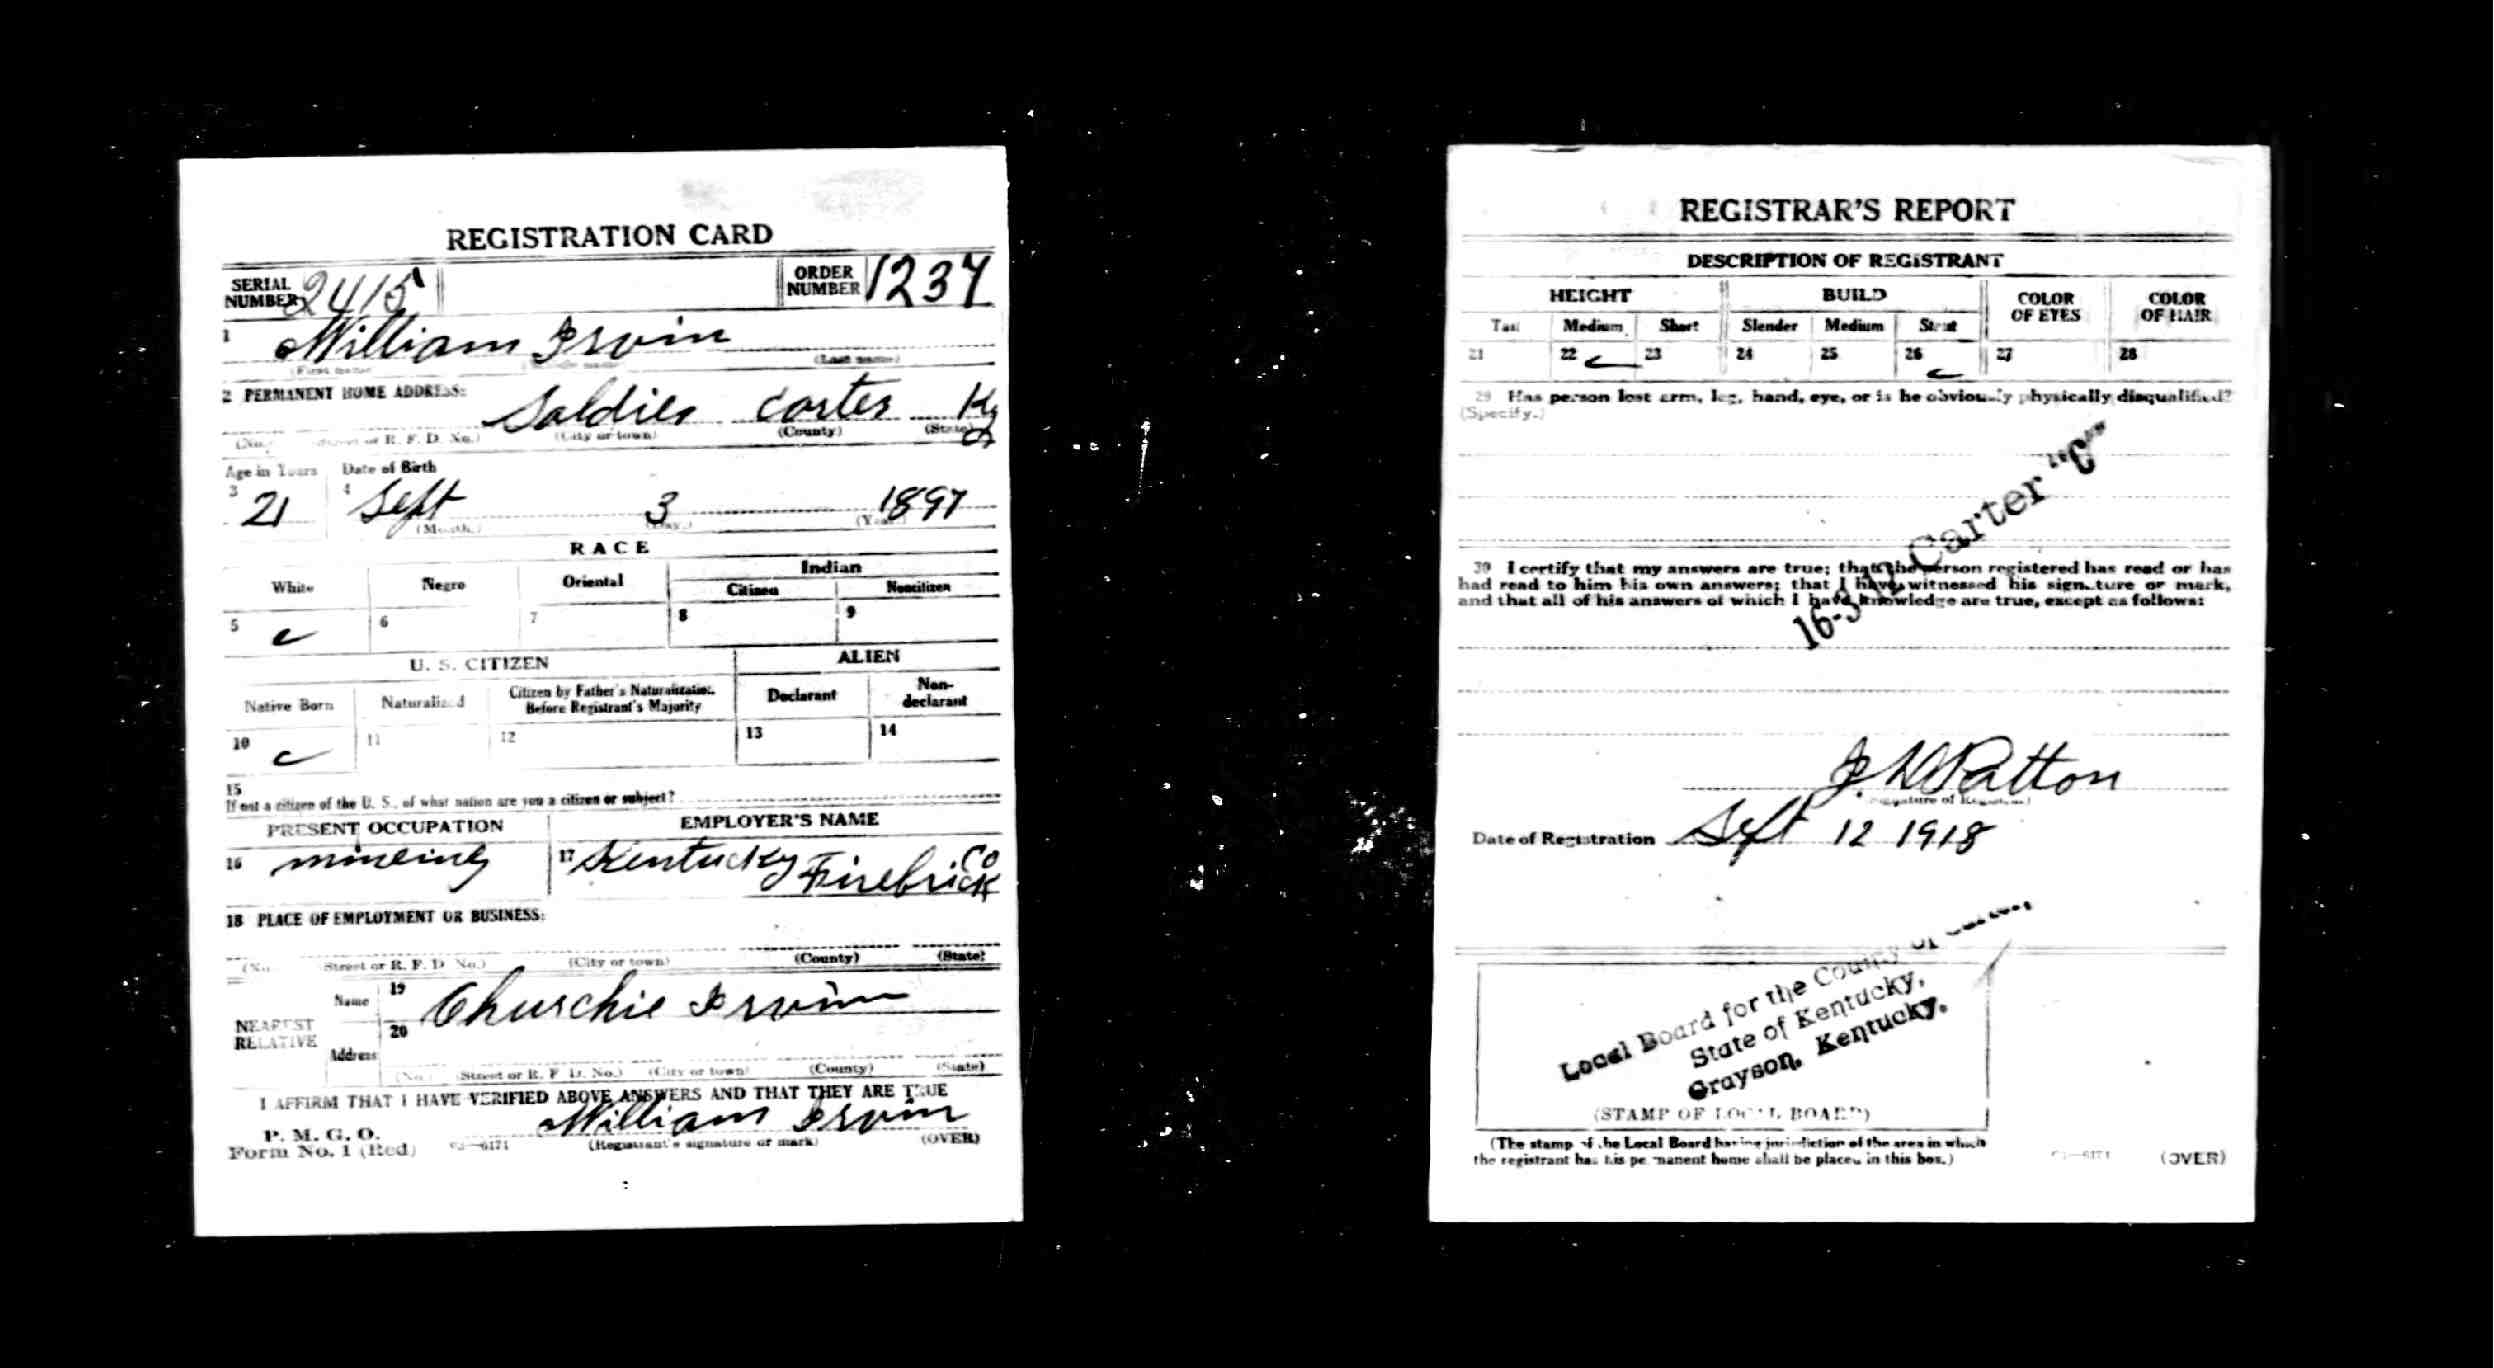 REGISTRATION CARD
SERIAL NUMBER 2415
ORDER NUMBER 1237
1 William Irvin
(First name) (Middle name) (Last name)
2 PERMANENT HOME ADDRESS:
Soldier Carter Ky
(No.) (Street or R. F. D. No.) (City or town) (County) (State)
Age in Years Date of Birth
3 21 4 Sept 3 1897
(Month.) (Day.) (Year.)
RACE
White Negro Oriental Indian
Citizen Noncitizen
5 6 7 8 9
U. S. CITIZEN ALIEN
Native Born Naturalized Citizen by Father's Naturalization Before Registrant's Majority Declarant Non-declarant
10 11 12 13 14
15
If not a citizen of the U. S., of what nation are you a citizen or subject?
PRESENT OCCUPATION EMPLOYER'S NAME
16 mineing 17 Kentucky Firebrick Co
18 PLACE OF EMPLOYMENT OR BUSINESS:
(No. Street or R. F. D No.) (City or town) (County) (State)
NEAREST RELATIVE
Name 19 Churchie Irvin
Address 20
(No.) (Street or R. F. D. No.) (City or town) (County) (State)
I AFFIRM THAT I HAVE VERIFIED ABOVE ANSWERS AND THAT THEY ARE TRUE
P. M. G. O.
Form No. 1 (Red) William Irvin
(Registrant's signature or mark) (OVER)
REGISTRAR'S REPORT
DESCRIPTION OF REGISTRANT
HEIGHT BUILD COLOR OF EYES COLOR OF HAIR
Tall Medium Short Slender Medium Stout
21 22 23 24 25 26 27 28
29 Has person lost arm, leg, hand, eye, or is he obviously physically disqualified?
(Specify.)
Carter "C"
30 I certify that my answers are true; that the person registered has read or has
had read to him his own answers; that I have witnessed his signature or mark,
and that all of his answers of which I have knowledge are true, except as follows:
Patton
(Signature of Registrar)
Date of Registration Sept 12 1918
Local Board for the County of Carter,
State of Kentucky,
Grayson, Kentucky.
(STAMP OF LOCAL BOARD)
(The stamp of the Local Board having jurisdiction of the area in which
the registrant has his permanent home shall be placed in this box.)
(OVER)